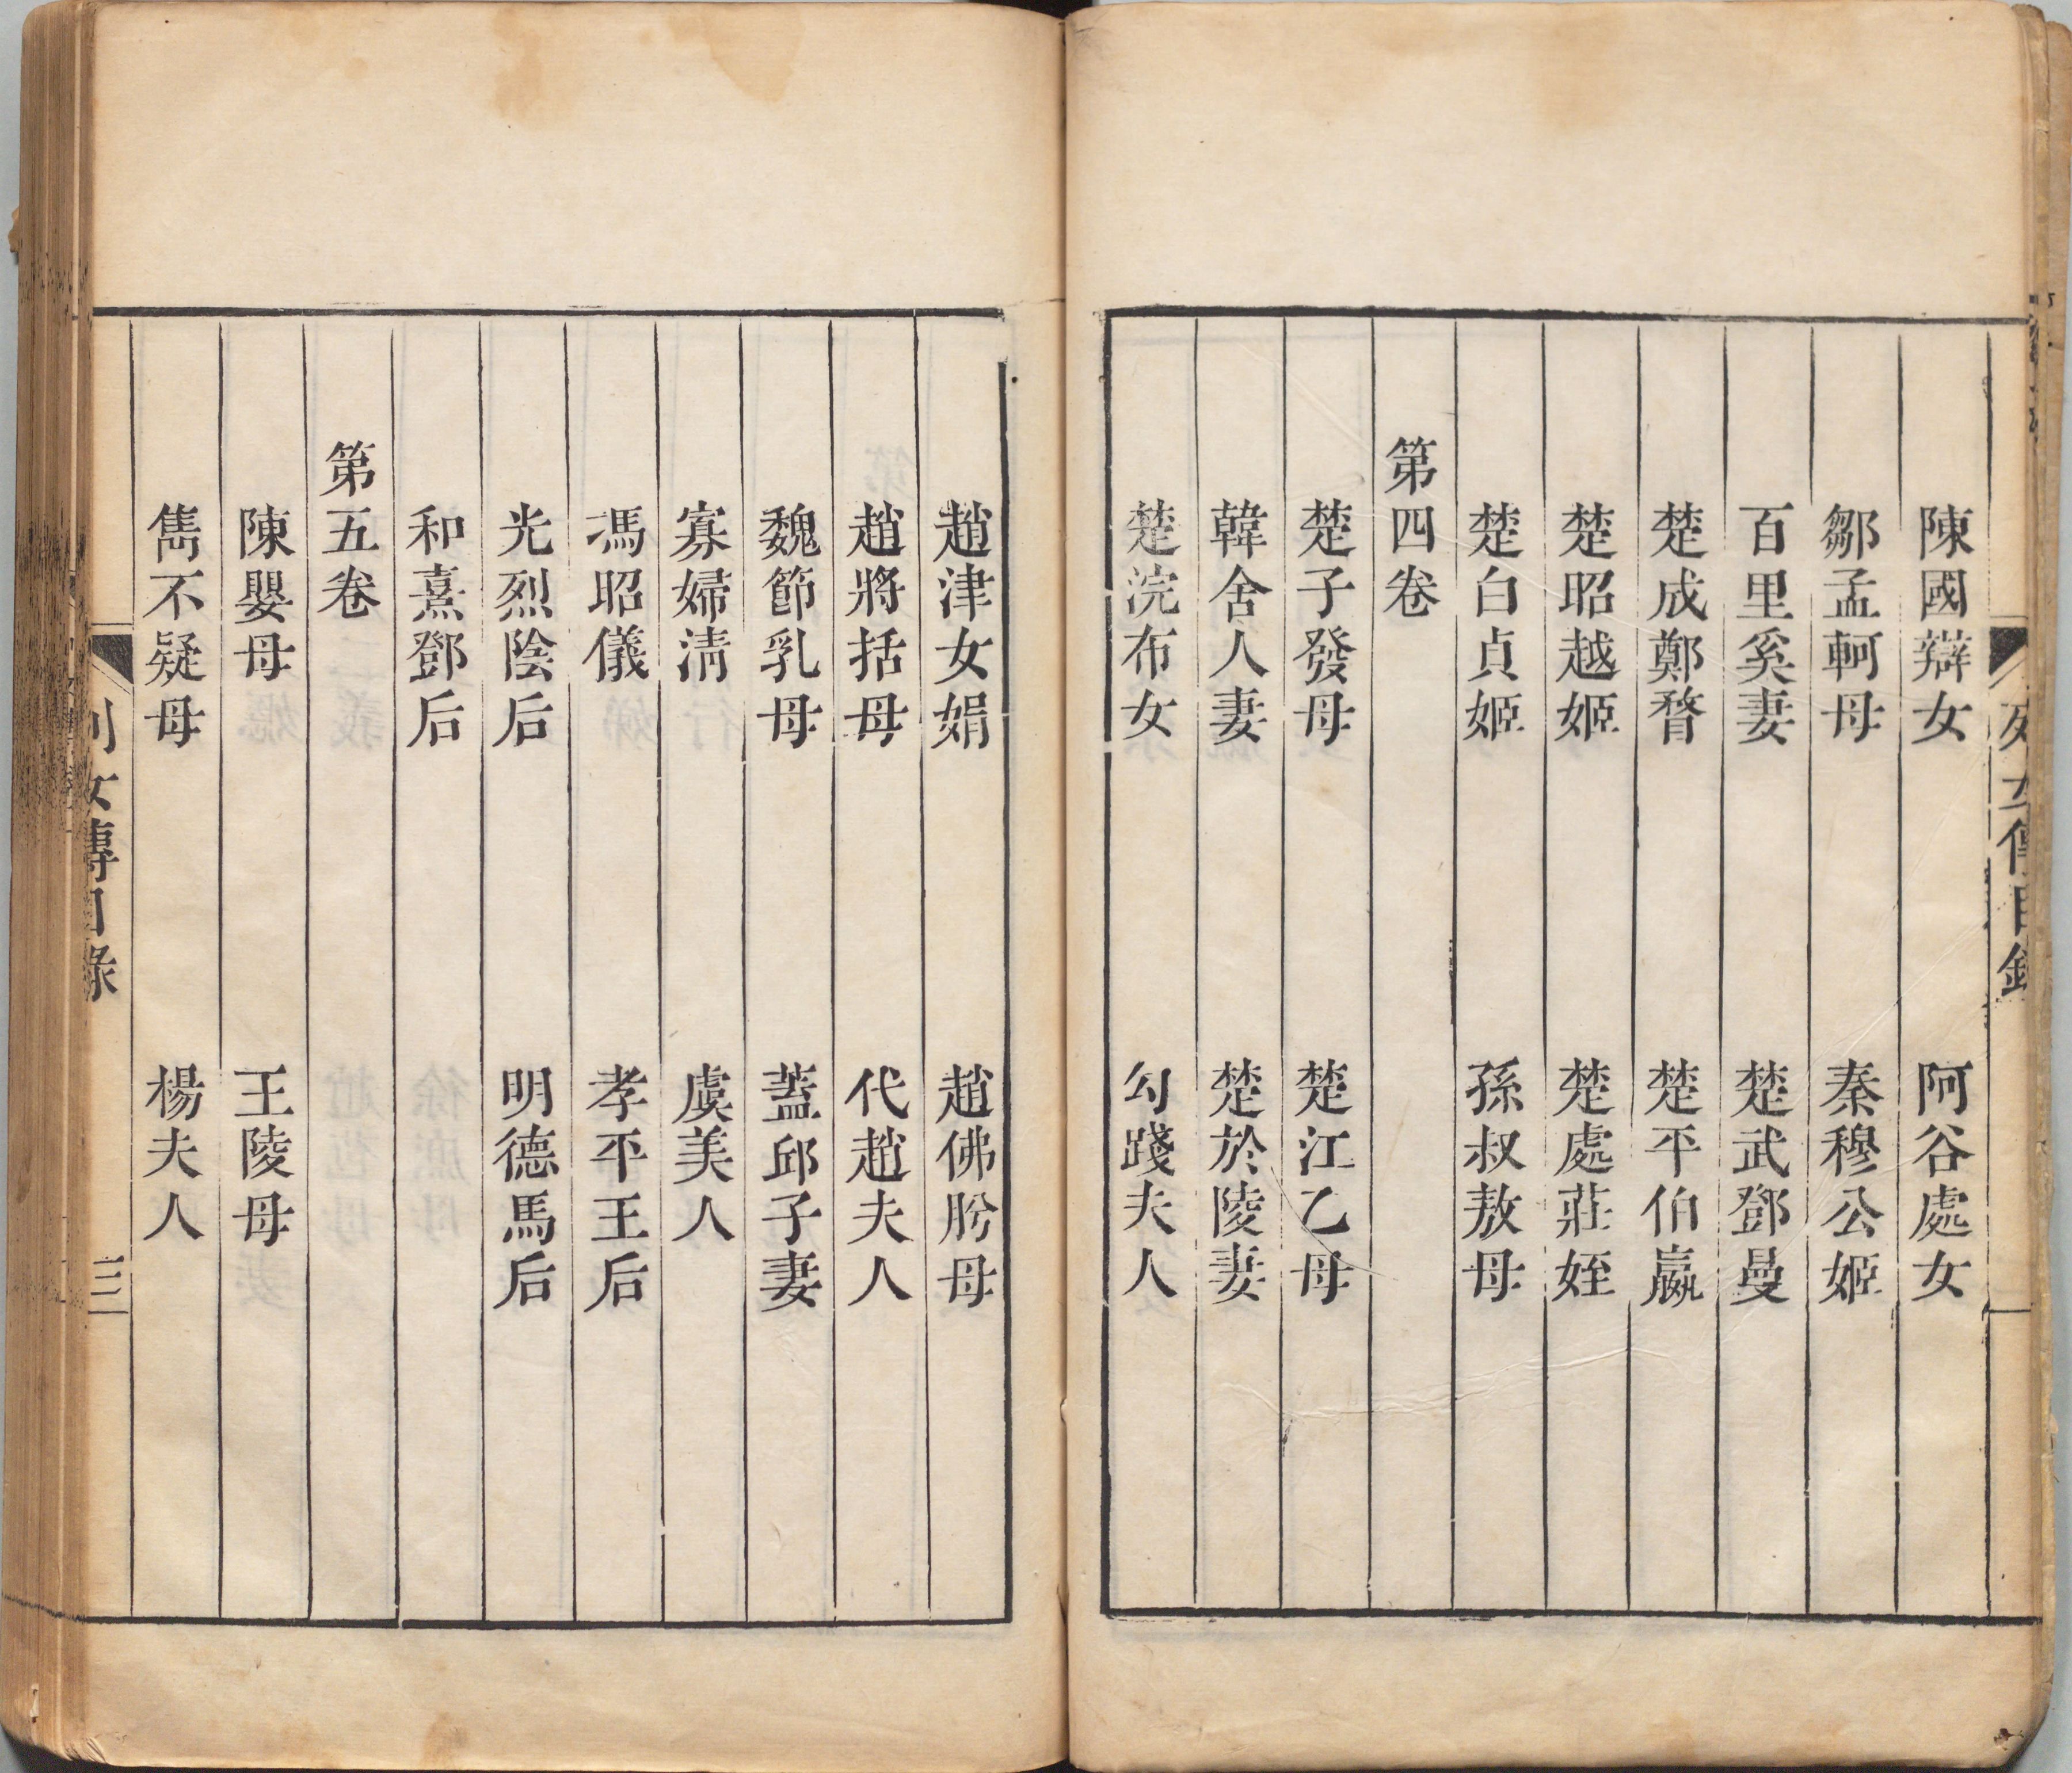 陳國辯女　阿谷處女
鄒孟軻母　秦穆公姬
百里奚妻　楚武鄧曼
楚成鄭瞀　楚平伯嬴
楚昭越姬　楚處莊姪
楚白貞姬　孫叔敖母
第四卷
楚子發母　楚江乙母
韓舍人妻　楚於陵妻
楚浣布女　勾踐夫人
趙津女娟　趙佛肹母
趙將括母　代趙夫人
魏節乳母　蓋邱子妻
寡婦淸　虞美人
馮昭儀　孝平王后
光烈陰后　明德馬后
和熹鄧后
第五卷
陳嬰母　王陵母
雋不疑母　楊夫人
列女傳目錄　三